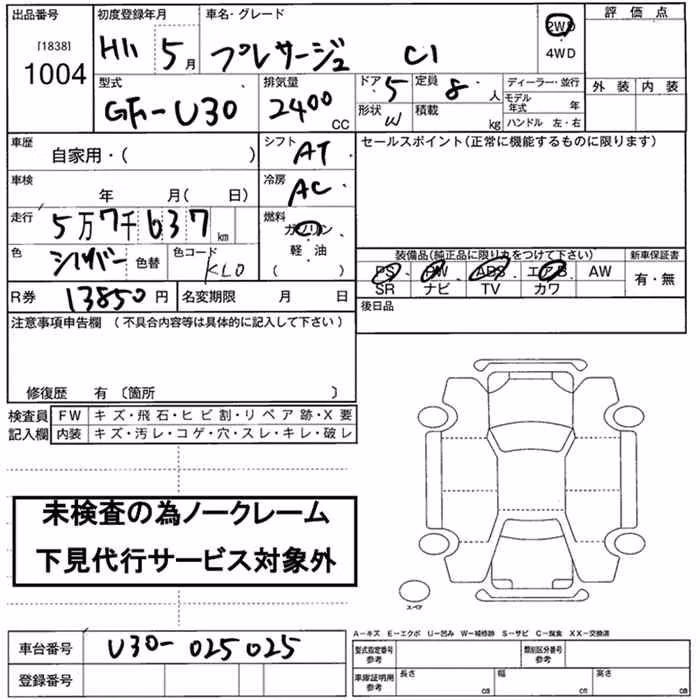 出品番号
[1838]
1004
初度登録年月
H11 5月
車名・グレード
プレサージュ C1
2WD
4WD
評価点
外装 内装
型式
GF-U30
排気量
2400 CC
ドア 5
形状 W
定員 8 人
積載 kg
ディーラー・並行
モデル年式 年
ハンドル 左・右
車歴
自家用・( )
シフト AT
車検
年 月( 日)
冷房 AC
走行
5万7千637 km
燃料
ガソリン
・
軽・油
( )
色
シルバー 色替
色コード KL0
R券 13850円
名変期限 月 日
セールスポイント(正常に機能するものに限ります)
装備品(純正品に限り丸をつけて下さい)
PS PW ABS エアB AW
SR ナビ TV カワ
新車保証書
有・無
後日品
注意事項申告欄 (不具合内容等は具体的に記入して下さい)
修復歴 有 〔箇所 〕
検査員
記入欄
FW キズ・飛石・ヒビ割・リペア跡・X要
内装 キズ・汚レ・コゲ・穴・スレ・キレ・破レ
未検査の為ノークレーム
下見代行サービス対象外
スペア
車台番号 U30-025025
登録番号
A-キズ E-エクボ U-凹み W-補修跡 S-サビ C-腐食 XX-交換済
型式指定番号
参考
類別区分番号
参考
車庫証明用
参考
長さ cm
幅 cm
高さ cm